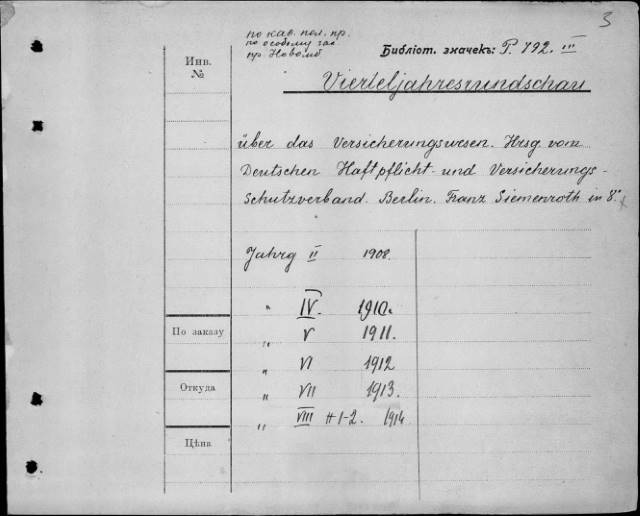 3
по кав. пол. пр.
по особому
пр.
Библіот. значекъ: P. 792. III
Инв.
№
Vierteljahresrundschau
über das Versicherungswesen. Hrsg. vom
Deutschen Haftpflicht- und Versicherungs-
Schutzverband. Berlin. Franz Siemenroth in 8°
Jahrg II 1908.
" IV. 1910.
" V 1911.
По заказу
" VI 1912
" VII 1913.
Откуда
" VIII H 1-2. 1914
Цѣна